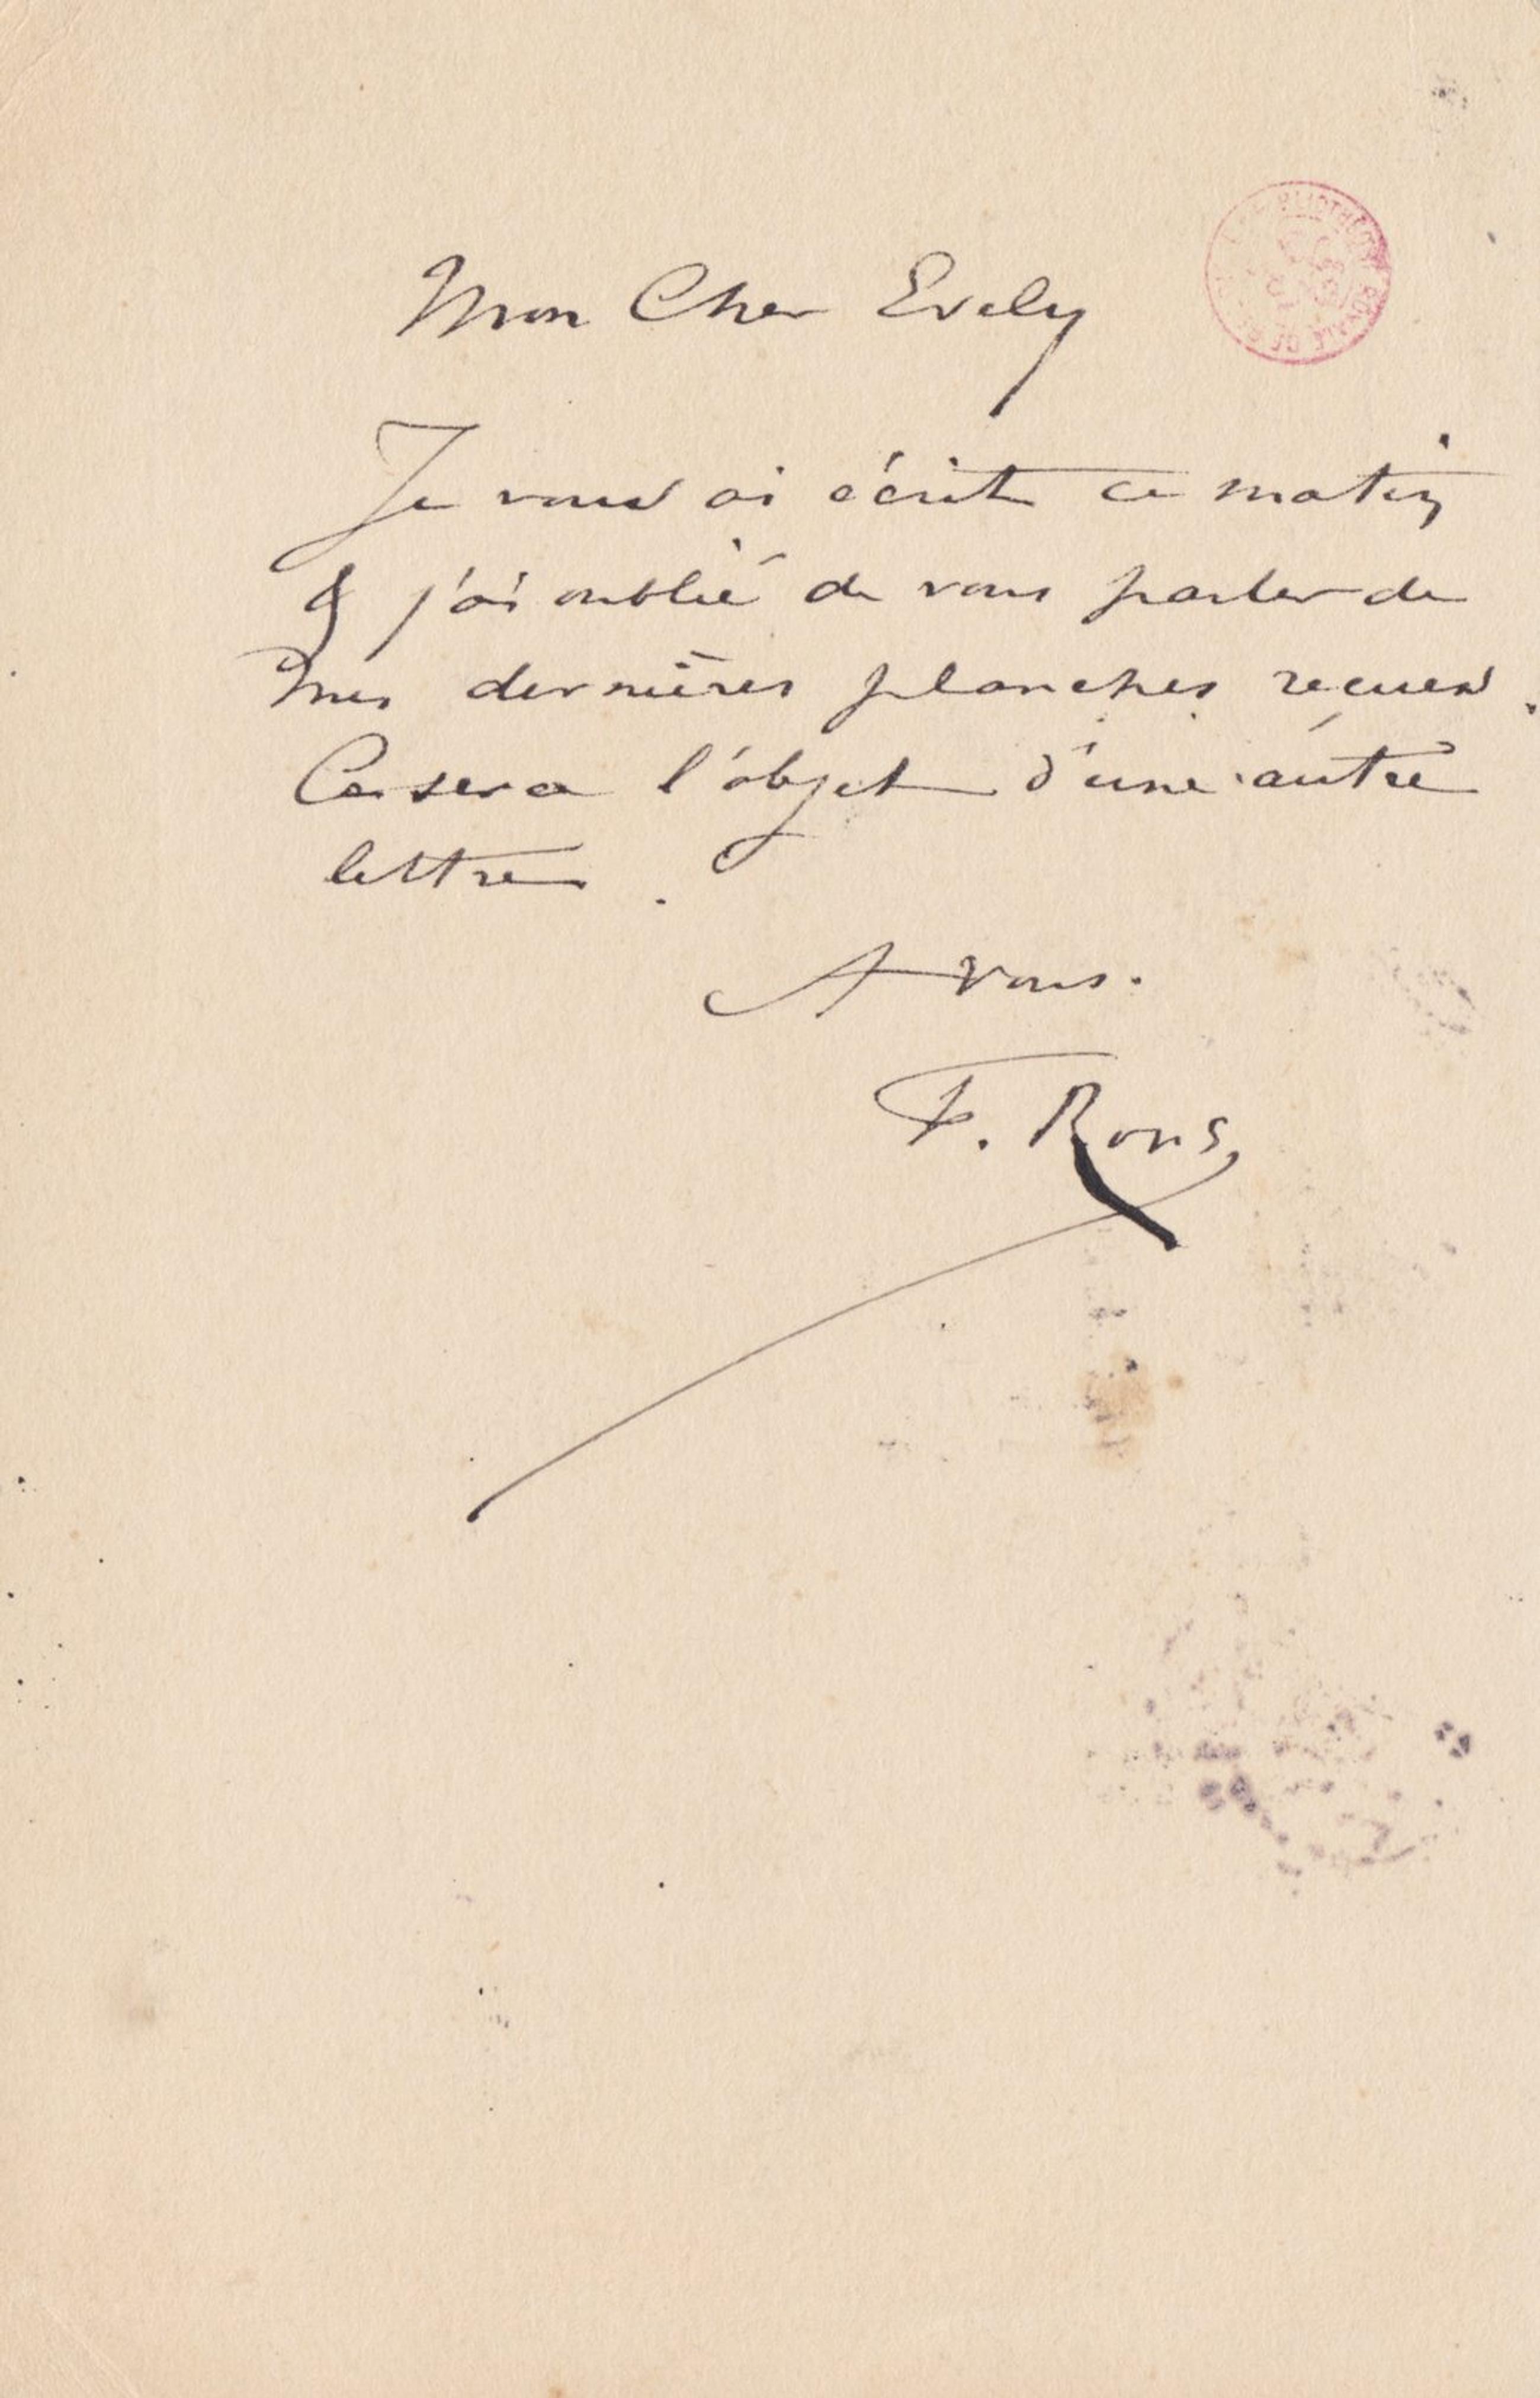 Mon Cher Evely
Je vous ai écrit ce matin
& j'ai oublié de vous parler de
mes dernières planches reçues.
Ce sera l'objet d'une autre
lettre.
A vous.
F. Rops